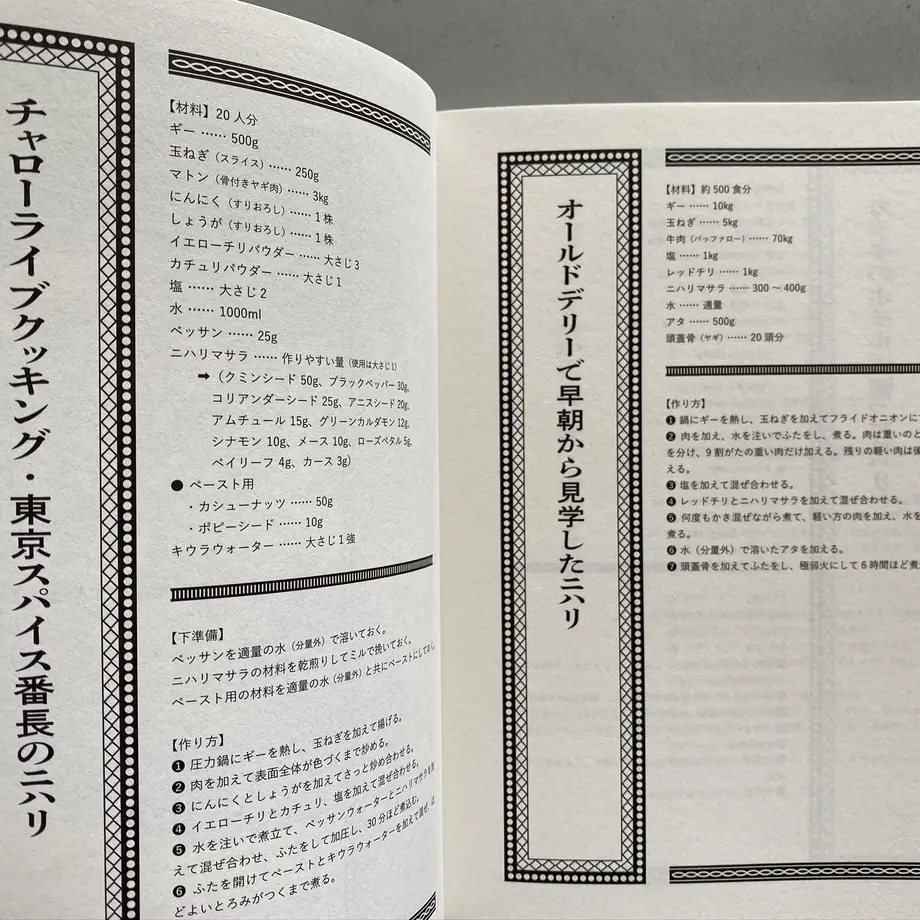 チャローライブクッキング・東京スパイス番長のニハリ
【材料】20人分
ギー …… 500g
玉ねぎ（スライス）…… 250g
マトン（骨付きヤギ肉）…… 3kg
にんにく（すりおろし）…… 1株
しょうが（すりおろし）…… 1株
イエローチリパウダー …… 大さじ3
カチュリパウダー …… 大さじ1
塩 …… 大さじ2
水 …… 1000ml
ベッサン …… 25g
ニハリマサラ …… 作りやすい量（使用は大さじ1）
➡（クミンシード 50g、ブラックペッパー 30g、
コリアンダーシード 25g、アニスシード 20g、
アムチュール 15g、グリーンカルダモン 12g、
シナモン 10g、メース 10g、ローズペタル 5g、
ベイリーフ 4g、カース 3g）
● ペースト用
・カシューナッツ …… 50g
・ポピーシード …… 10g
キウラウォーター …… 大さじ1強
【下準備】
ベッサンを適量の水（分量外）で溶いておく。
ニハリマサラの材料を乾煎りしてミルで挽いておく。
ペースト用の材料を適量の水（分量外）と共にペーストにしておく。
【作り方】
❶ 圧力鍋にギーを熱し、玉ねぎを加えて揚げる。
❷ 肉を加えて表面全体が色づくまで炒める。
❸ にんにくとしょうがを加えてさっと炒め合わせる。
❹ イエローチリとカチュリ、塩を加えて混ぜ合わせる。
❺ 水を注いで煮立て、ベッサンウォーターとニハリマサラを加
えて混ぜ合わせ、ふたをして加圧し、30分ほど煮込む。
❻ ふたを開けてペーストとキウラウォーターを加えて混ぜ、
どよいとろみがつくまで煮る。
オールドデリーで早朝から見学したニハリ
【材料】約500食分
ギー …… 10kg
玉ねぎ …… 5kg
牛肉（バッファロー）…… 70kg
塩 …… 1kg
レッドチリ …… 1kg
ニハリマサラ …… 300～400g
水 …… 適量
アタ …… 500g
頭蓋骨（ヤギ）…… 20頭分
【作り方】
❶ 鍋にギーを熱し、玉ねぎを加えてフライドオニオンに
❷ 肉を加え、水を注いでふたをし、煮る。肉は重いのと
を分け、9割がたの重い肉だけ加える。残りの軽い肉は後
える。
❸ 塩を加えて混ぜ合わせる。
❹ レッドチリとニハリマサラを加えて混ぜ合わせる。
❺ 何度もかき混ぜながら煮て、軽い方の肉を加え、水を
煮る。
❻ 水（分量外）で溶いたアタを加える。
❼ 頭蓋骨を加えてふたをし、極弱火にして6時間ほど煮